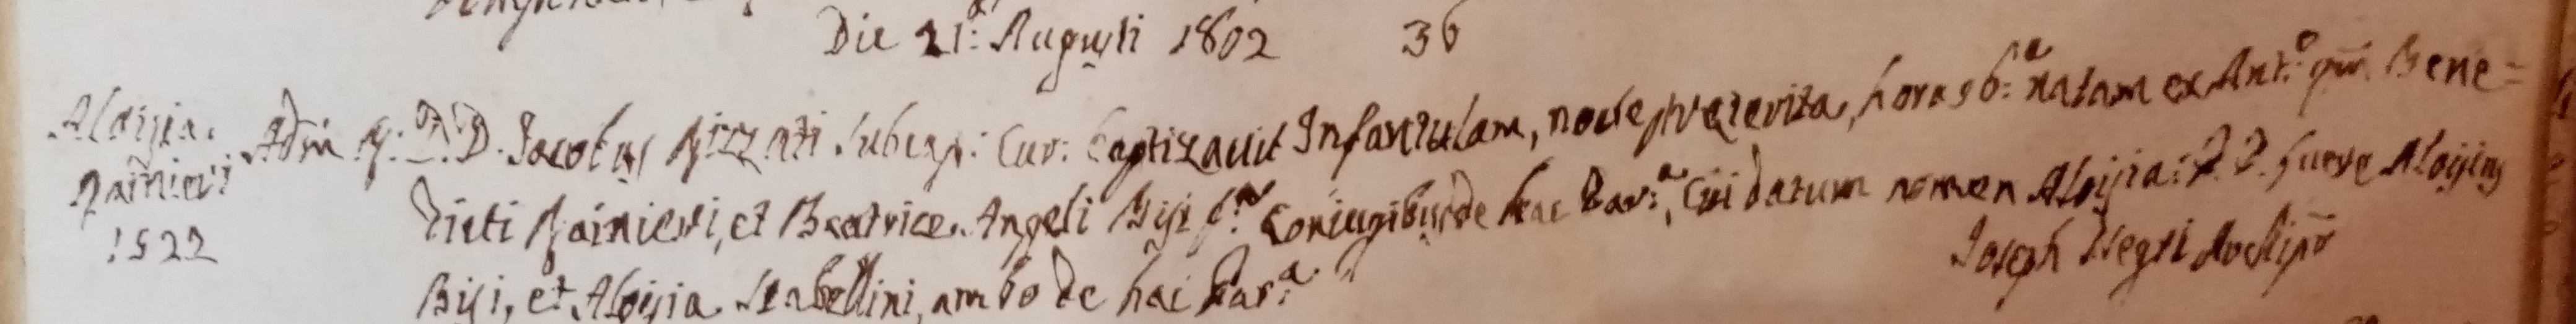 Die 21.ᵃ Augusti 1802 36
Aloijia.
Rainieri
1522
Adm R: D. D. Jacobus Rizzati Subcap: Cur: baptizavit Infantulam, nocte præterita, hora 6:ᵃ natam ex Ant:º qm̄ Bene=
dicti Rainieri, et Beatrice Angeli Bisi f.ª Coniugibus de hac Par:ª, Cui datum nomen Aloijia: P. P. fuere Aloijius
Bisi, et Aloijia Stabellini, ambo de hac Par:ª
Joseph Negri Archipr̄